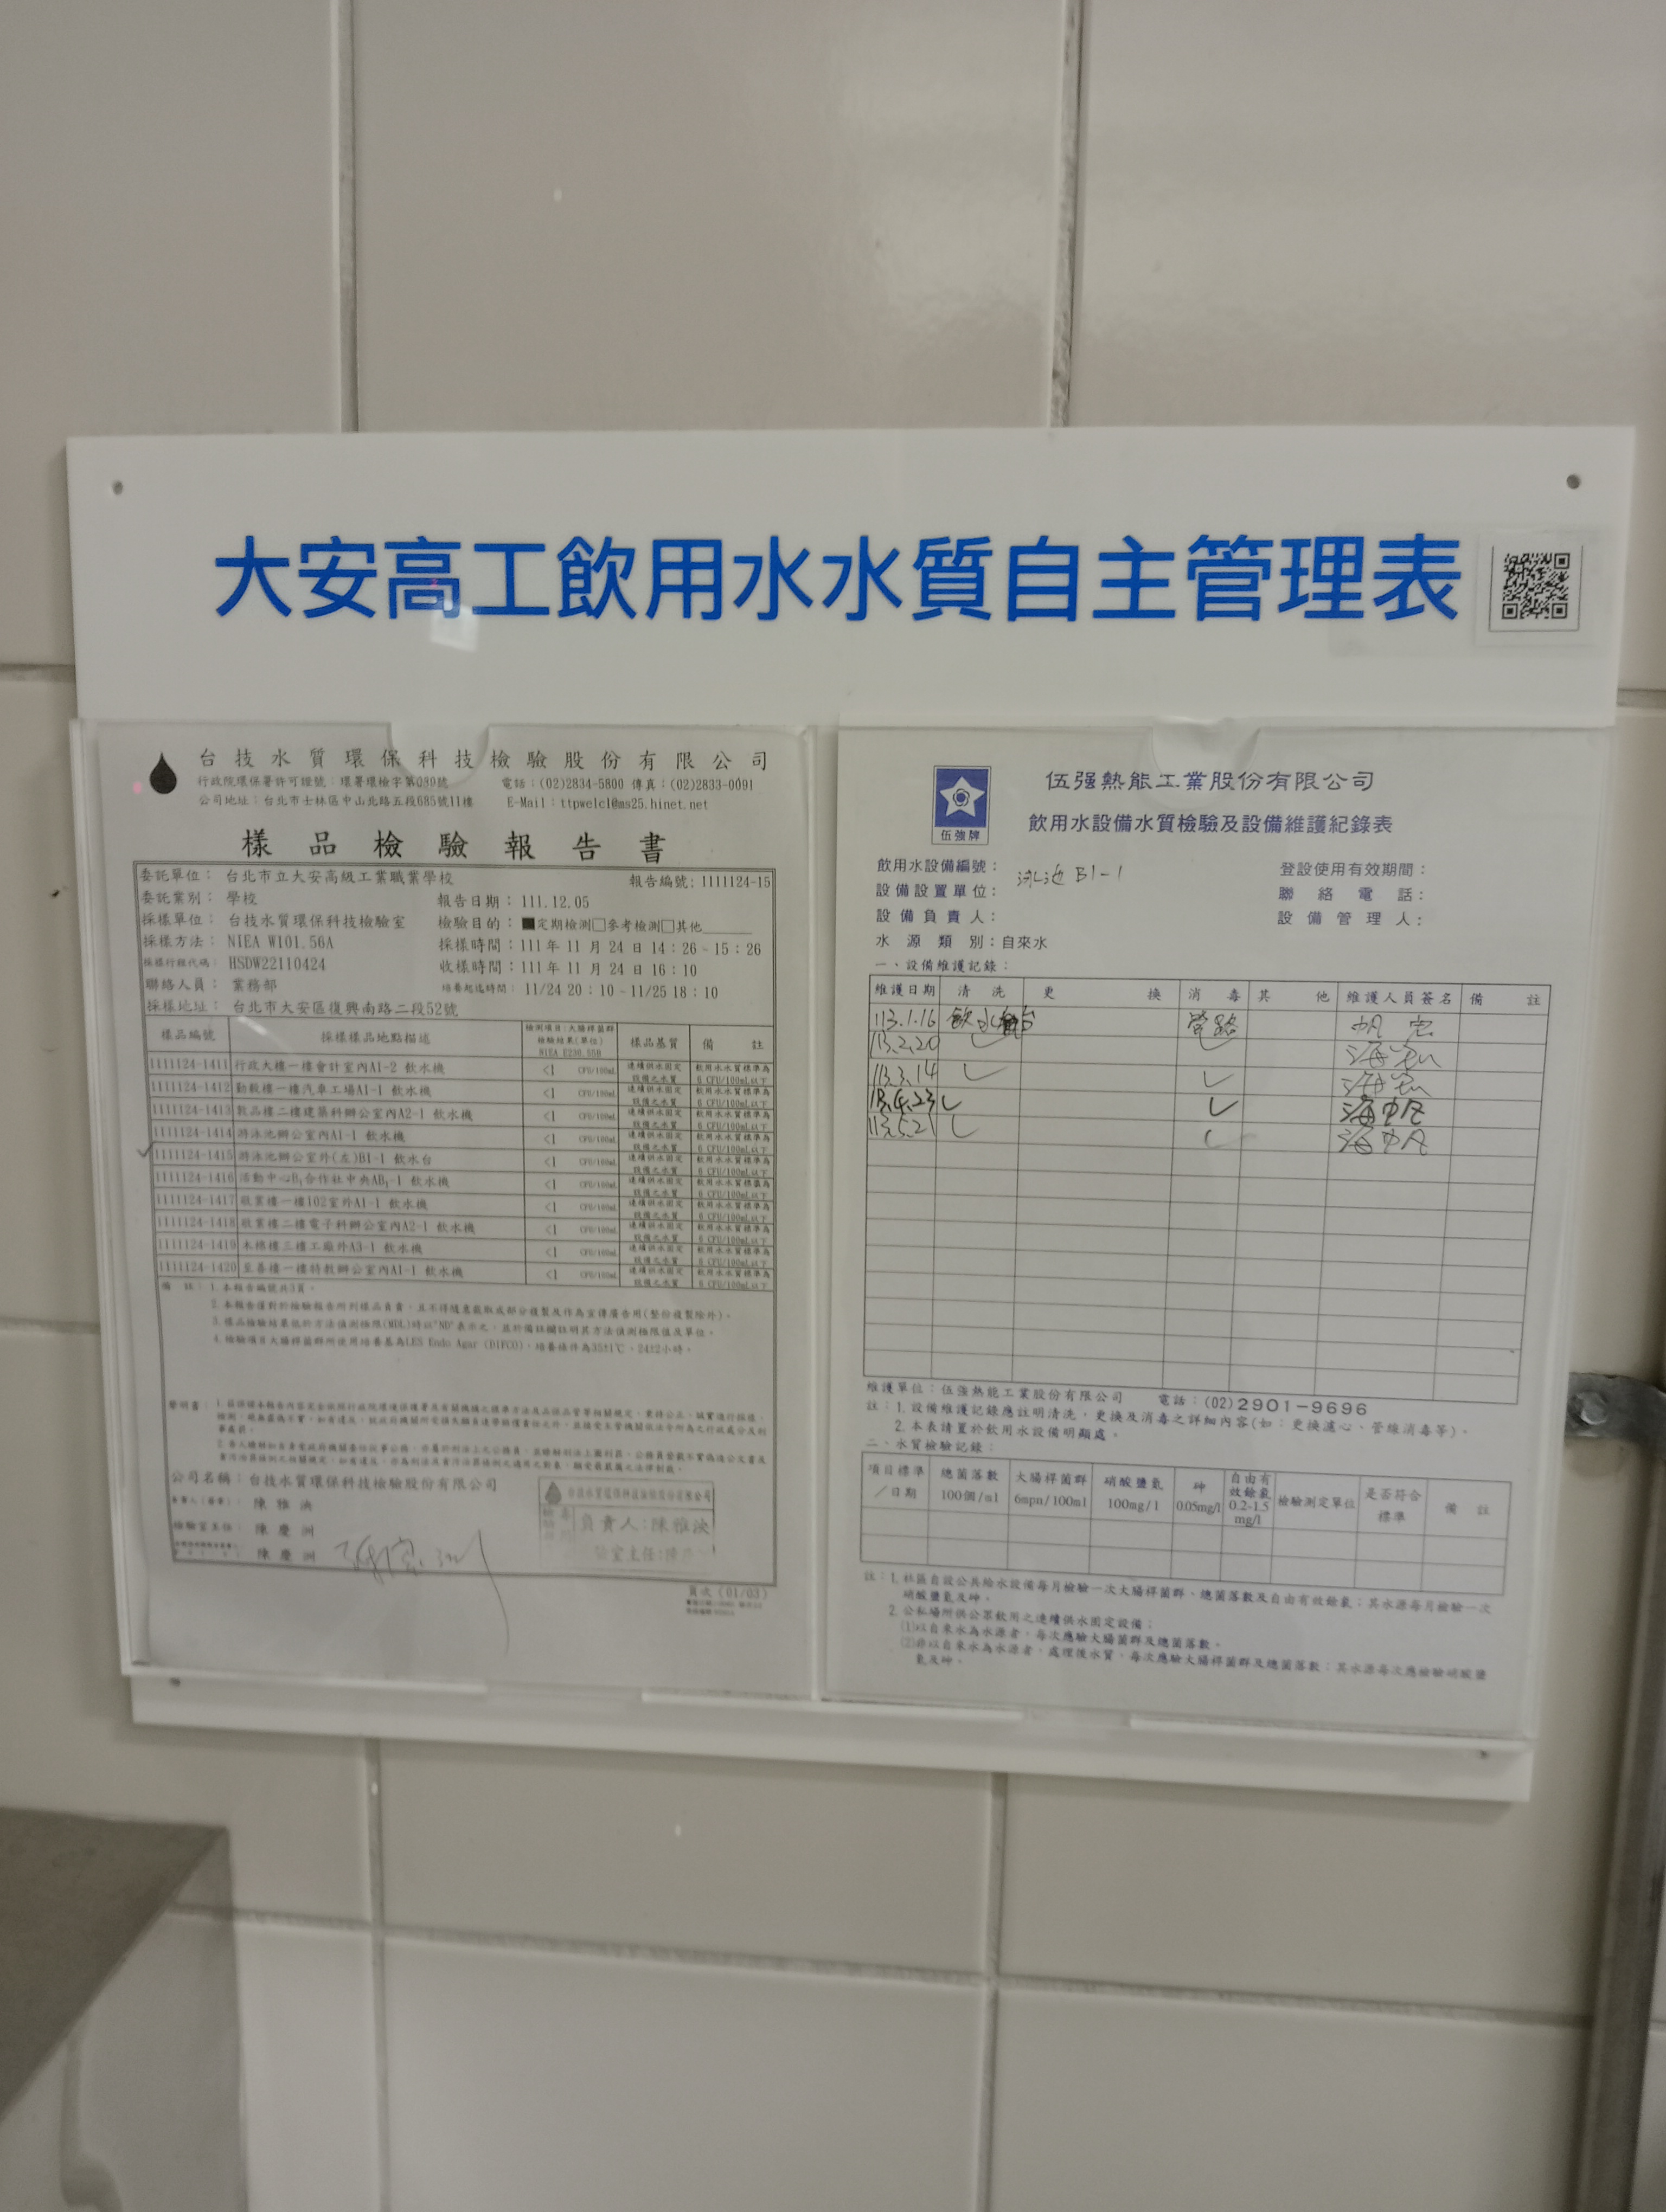 大安高工飲用水水質自主管理表
台技水質環保科技檢驗股份有限公司
行政院環保署許可證號：環署環檢字第039號 電話：(02)2834-5800 傳真：(02)2833-0091
公司地址：台北市士林區中山北路五段685號11樓 E-Mail：ttpwelcl@ms25.hinet.net
樣品檢驗報告書
委託單位： 台北市立大安高級工業職業學校 報告編號：1111124-15
委託業別： 學校 報告日期：111.12.05
採樣單位： 台技水質環保科技檢驗室 檢驗目的：■定期檢測□參考檢測□其他
採樣方法： NIEA W101.56A 採樣時間：111年11月24日14：26~15：26
採樣行程代碼： HSDW22110424 收樣時間：111年11月24日16：10
聯絡人員： 業務部 培養起迄時間： 11/24 20：10~11/25 18：10
採樣地址： 台北市大安區復興南路二段52號
樣品編號 採樣樣品地點描述 檢測項目:大腸桿菌群 檢驗結果(單位) NIEA E230.55B 樣品基質 備註
1111124-1411 行政大樓一樓會計室內A1-2 飲水機 <1 CFU/100mL 連續供水固定設備之水質 飲用水水質標準為6 CFU/100mL以下
1111124-1412 勤毅樓一樓汽車工場A1-1 飲水機 <1 CFU/100mL 連續供水固定設備之水質 飲用水水質標準為6 CFU/100mL以下
1111124-1413 敦品樓二樓建築科辦公室內A2-1 飲水機 <1 CFU/100mL 連續供水固定設備之水質 飲用水水質標準為6 CFU/100mL以下
1111124-1414 游泳池辦公室內A1-1 飲水機 <1 CFU/100mL 連續供水固定設備之水質 飲用水水質標準為6 CFU/100mL以下
1111124-1415 游泳池辦公室外(左)B1-1 飲水台 <1 CFU/100mL 連續供水固定設備之水質 飲用水水質標準為6 CFU/100mL以下
1111124-1416 活動中心B1合作社中央AB1-1 飲水機 <1 CFU/100mL 連續供水固定設備之水質 飲用水水質標準為6 CFU/100mL以下
1111124-1417 敬業樓一樓102室外A1-1 飲水機 <1 CFU/100mL 連續供水固定設備之水質 飲用水水質標準為6 CFU/100mL以下
1111124-1418 敬業樓二樓電子科辦公室內A2-1 飲水機 <1 CFU/100mL 連續供水固定設備之水質 飲用水水質標準為6 CFU/100mL以下
1111124-1419 木維樓三樓工廠外A3-1 飲水機 <1 CFU/100mL 連續供水固定設備之水質 飲用水水質標準為6 CFU/100mL以下
1111124-1420 至善樓一樓特教辦公室內A1-1 飲水機 <1 CFU/100mL 連續供水固定設備之水質 飲用水水質標準為6 CFU/100mL以下
備註：1.本報告編號共3頁。
2.本報告僅對於檢驗報告所列樣品負責，且不得隨意截取或部分複製及作為宣傳廣告用(整份複製除外)。
3.樣品檢驗結果低於方法偵測極限(MDL)時以"ND"表示之，並於備註欄註明其方法偵測極限值及單位。
4.檢驗項目大腸桿菌群所使用培養基為LES Endo Agar (DIFCO)，培養條件為35±1℃、24±2小時。
聲明書：
公司名稱：台技水質環保科技檢驗股份有限公司
陳雅泱
檢驗室主任： 陳慶洲
陳慶洲
台技水質環保科技檢驗股份有限公司
負責人：陳雅泱
頁次 (01/03)
伍強牌
伍强熱能工業股份有限公司
飲用水設備水質檢驗及設備維護紀錄表
飲用水設備編號： 泳池 B1-1 登設使用有效期間：
設備設置單位： 聯絡電話：
設備負責人： 設備管理人：
水源類別：自來水
一、設備維護記錄：
維護日期 清洗 更換 消毒 其他 維護人員簽名 備註
113.1.16 飲水 管路
113.2.20 ✓ ✓
113.3.14 ✓ ✓
113.4.23 ✓ ✓
113.5.21 ✓ ✓
維護單位：伍强熱能工業股份有限公司 電話：(02)2901-9696
註：1.設備維護記錄應註明清洗，更換及消毒之詳細內容(如：更換濾心、管線消毒等)。
2.本表請置於飲用水設備明顯處。
二、水質檢驗記錄：
項目標準／日期 總菌落數 100個/ml 大腸桿菌群 6mpn/100ml 硝酸鹽氮 100mg/l 砷 0.05mg/l 自由有效餘氯 0.2-1.5 mg/l 檢驗測定單位 是否符合標準 備註
註：1.社區自設公共給水設備每月檢驗一次大腸桿菌群、總菌落數及自由有效餘氯；其水源每月檢驗一次
硝酸鹽氮及砷。
2.公私場所供公眾飲用之連續供水固定設備；
(1)以自來水為水源者，每次應驗大腸菌群及總菌落數。
(2)非以自來水為水源者，處理後水質，每次應驗大腸桿菌群及總菌落數；其水源每次應檢驗硝酸鹽
氮及砷。